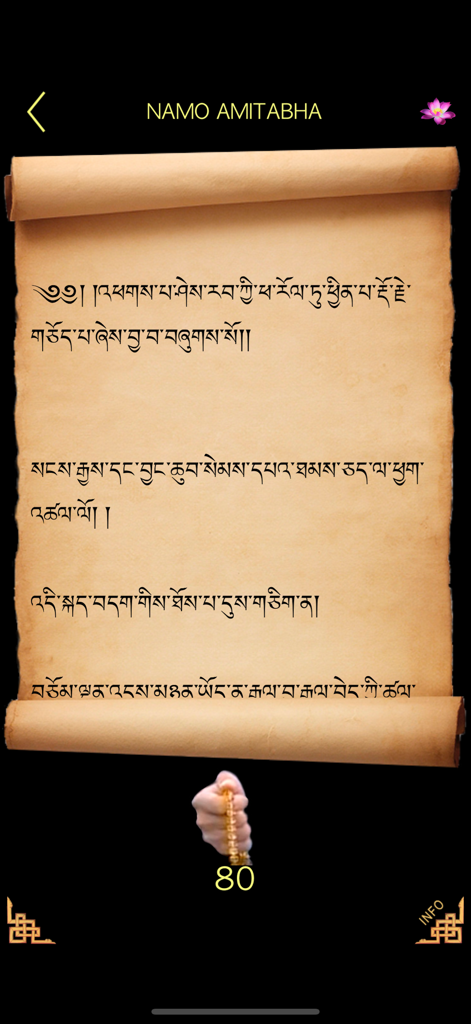 NAMO AMITABHA
༄༅། །འཕགས་པ་ཤེས་རབ་ཀྱི་ཕ་རོལ་ཏུ་ཕྱིན་པ་རྡོ་རྗེ་
གཅོད་པ་ཞེས་བྱ་བ་བཞུགས་སོ།།
སངས་རྒྱས་དང་བྱང་ཆུབ་སེམས་དཔའ་ཐམས་ཅད་ལ་ཕྱག་
འཚལ་ལོ། །
འདི་སྐད་བདག་གིས་ཐོས་པ་དུས་གཅིག་ན།
བཅོམ་ལྡན་འདས་མཉན་ཡོད་ན་རྒྱལ་བུ་རྒྱལ་བྱེད་ཀྱི་ཚལ་
80
INFO